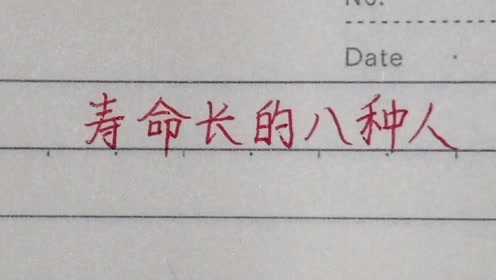 No.
Date
寿命长的八种人